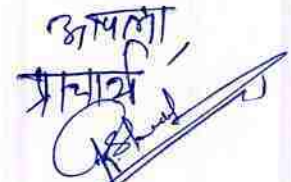 आपला,
प्राचार्य